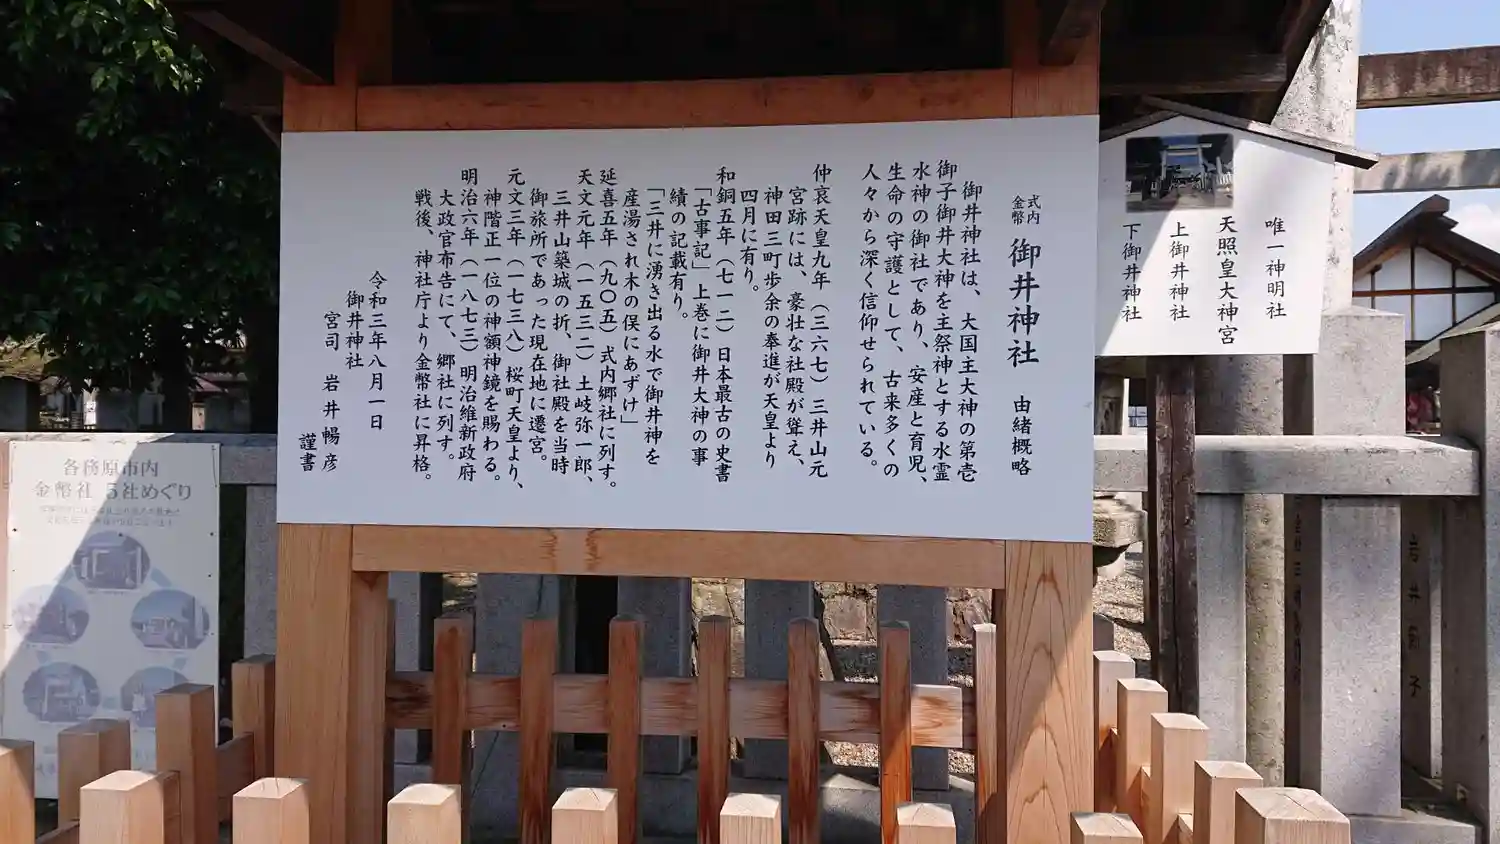 式内
金幣
御井神社 由緒概略
御井神社は、大国主大神の第壱
御子御井大神を主祭神とする水霊
水神の御社であり、安産と育児、
生命の守護として、古来多くの
人々から深く信仰せられている。
仲哀天皇九年（三六七）三井山元
宮跡には、豪壮な社殿が聳え、
神田三町歩余の奉進が天皇より
四月に有り。
和銅五年（七一二）日本最古の史書
「古事記」上巻に御井大神の事
績の記載有り。
「三井に湧き出る水で御井神を
産湯され木の俣にあずけ」
延喜五年（九〇五）式内郷社に列す。
天文元年（一五三二）土岐弥一郎、
三井山築城の折、御社殿を当時
御旅所であった現在地に遷宮。
元文三年（一七三八）桜町天皇より、
神階正一位の神額神鏡を賜わる。
明治六年（一八七三）明治維新政府
大政官布告にて、郷社に列す。
戦後、神社庁より金幣社に昇格。
令和三年八月一日
御井神社
宮司 岩井暢彦
謹書
唯一神明社
天照皇大神宮
上御井神社
下御井神社
各務原市内
金幣社 5社めぐり